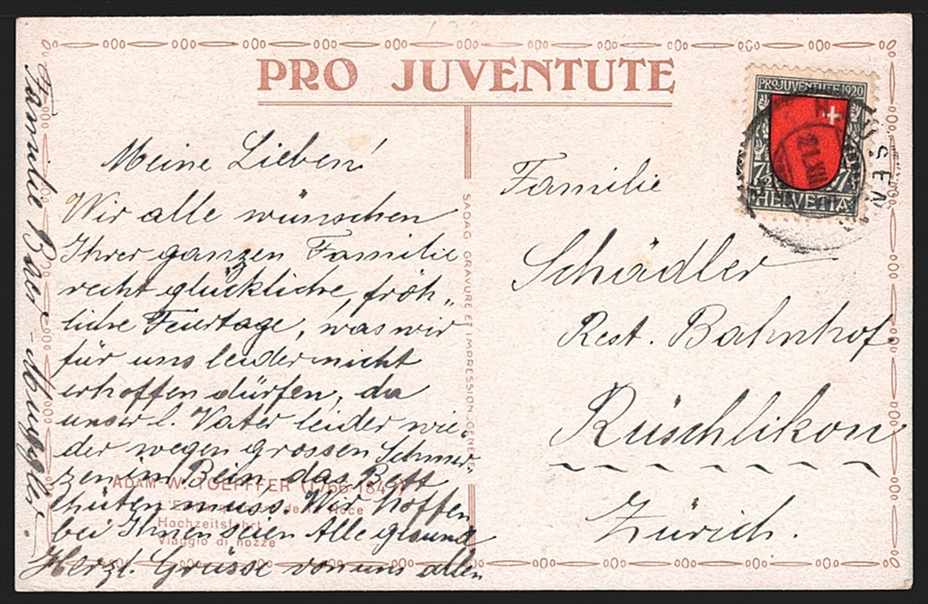 PRO JUVENTUTE
Meine Lieben!
Wir alle wünschen
Ihrer ganzen Familie
recht glückliche, fröh„
liche Feiertage, was wir
für uns leider nicht
erhoffen dürfen, da
unser l. Vater leider wie„
der wegen grossen Schmer„
zen im Bein, das Bett
hüten muss. Wir hoffen
bei Ihnen seien Alle gesund
Herzl. Grüsse von uns allen
Familie Baer -
ADAM W. TOEPFFER (1766-1847)
de noce
Hochzeitsfahrt
Viaggio di nozze
SADAG GRAVURE ET IMPRESSION-GENÈVE
PRO JUVENTUTE 1920
7½ 7½
HELVETIA
21.XII
SEN
Familie
Schädler
Rest. Bahnhof.
Rüschlikon
Zürich.